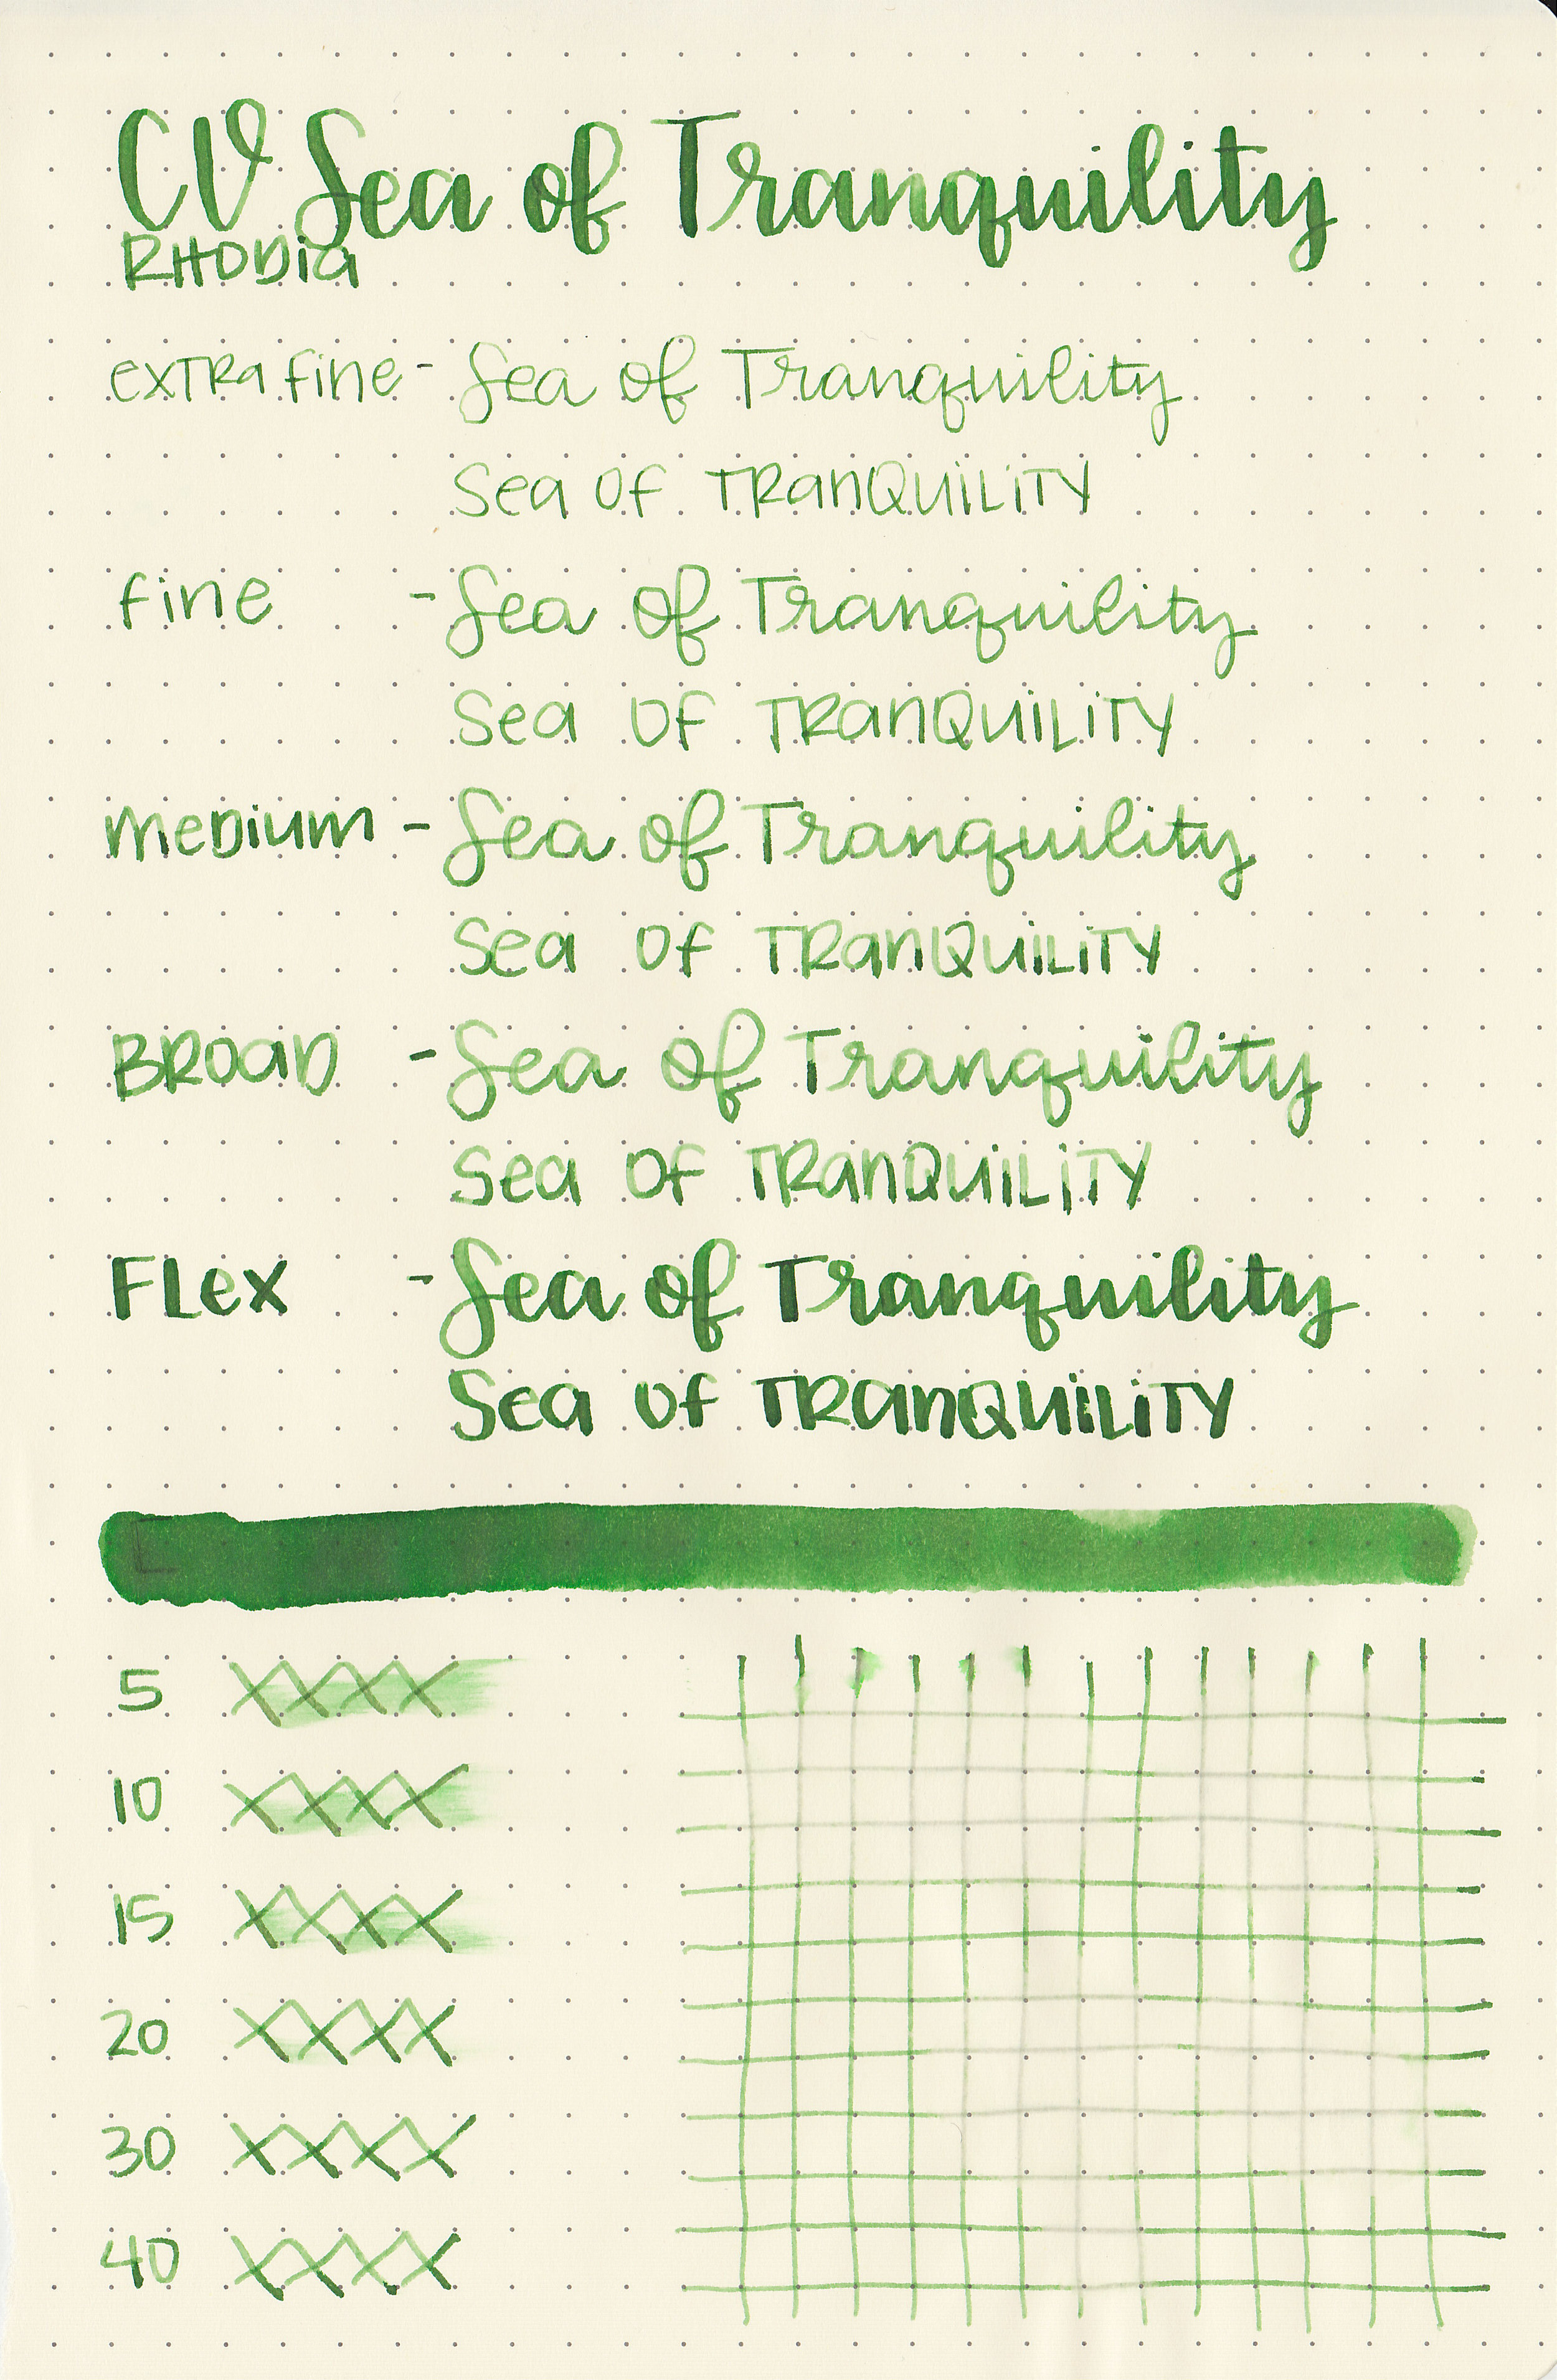 CV Sea of Tranquility
RHODia
exTRa fine - Sea of Tranquility
Sea Of TRanQUiLiTY
fine - Sea of Tranquility
Sea Of TRanQUiLiTY
meDium - Sea of Tranquility
Sea Of TRanQUiLiTY
BROaD - Sea of Tranquility
Sea Of TRanQUiLiTY
FLex - Sea of Tranquility
Sea Of TRanQUiLiTY
5 XXXX
10 XXXX
15 XXXX
20 XXXX
30 XXXX
40 XXXX